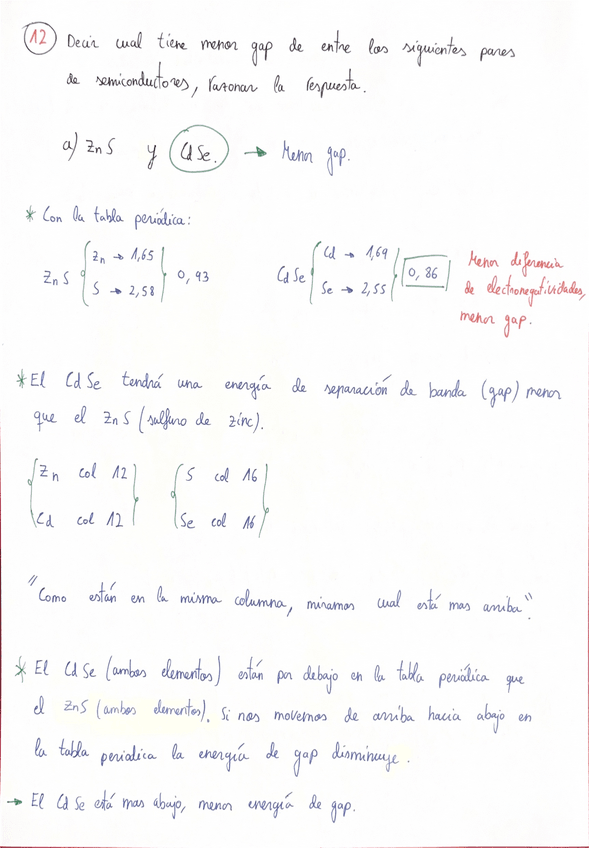 12 Decir cual tiene menor gap de entre los siguientes pares
de semiconductores, razonar la respuesta.
a) ZnS y CdSe. → Menor gap.
* Con la tabla periódica:
ZnS { Zn → 1,65 S → 2,58 } 0,93
CdSe { Cd → 1,69 Se → 2,55 } 0,86
Menor diferencia
de electronegatividades,
menor gap.
* El CdSe tendrá una energía de separación de banda (gap) menor
que el ZnS (sulfuro de zinc).
{ Zn col 12 } { S col 16 }
{ Cd col 12 } { Se col 16 }
"Como están en la misma columna, miramos cual está mas arriba".
* El CdSe (ambos elementos) están por debajo en la tabla periálica que
el ZnS (ambos elementos). Si nos movemos de arriba hacia abajo en
la tabla periodica la energía de gap disminuye.
→ El CdSe está mas abajo, menor energía de gap.